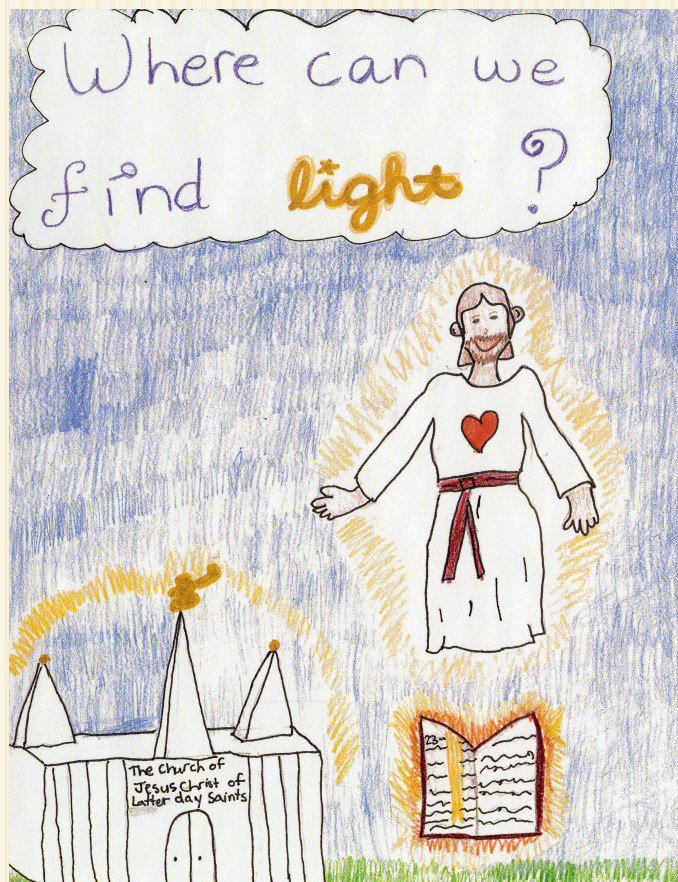 Where can we
find light ?
The Church of
Jesus Christ of
Latter day Saints
23